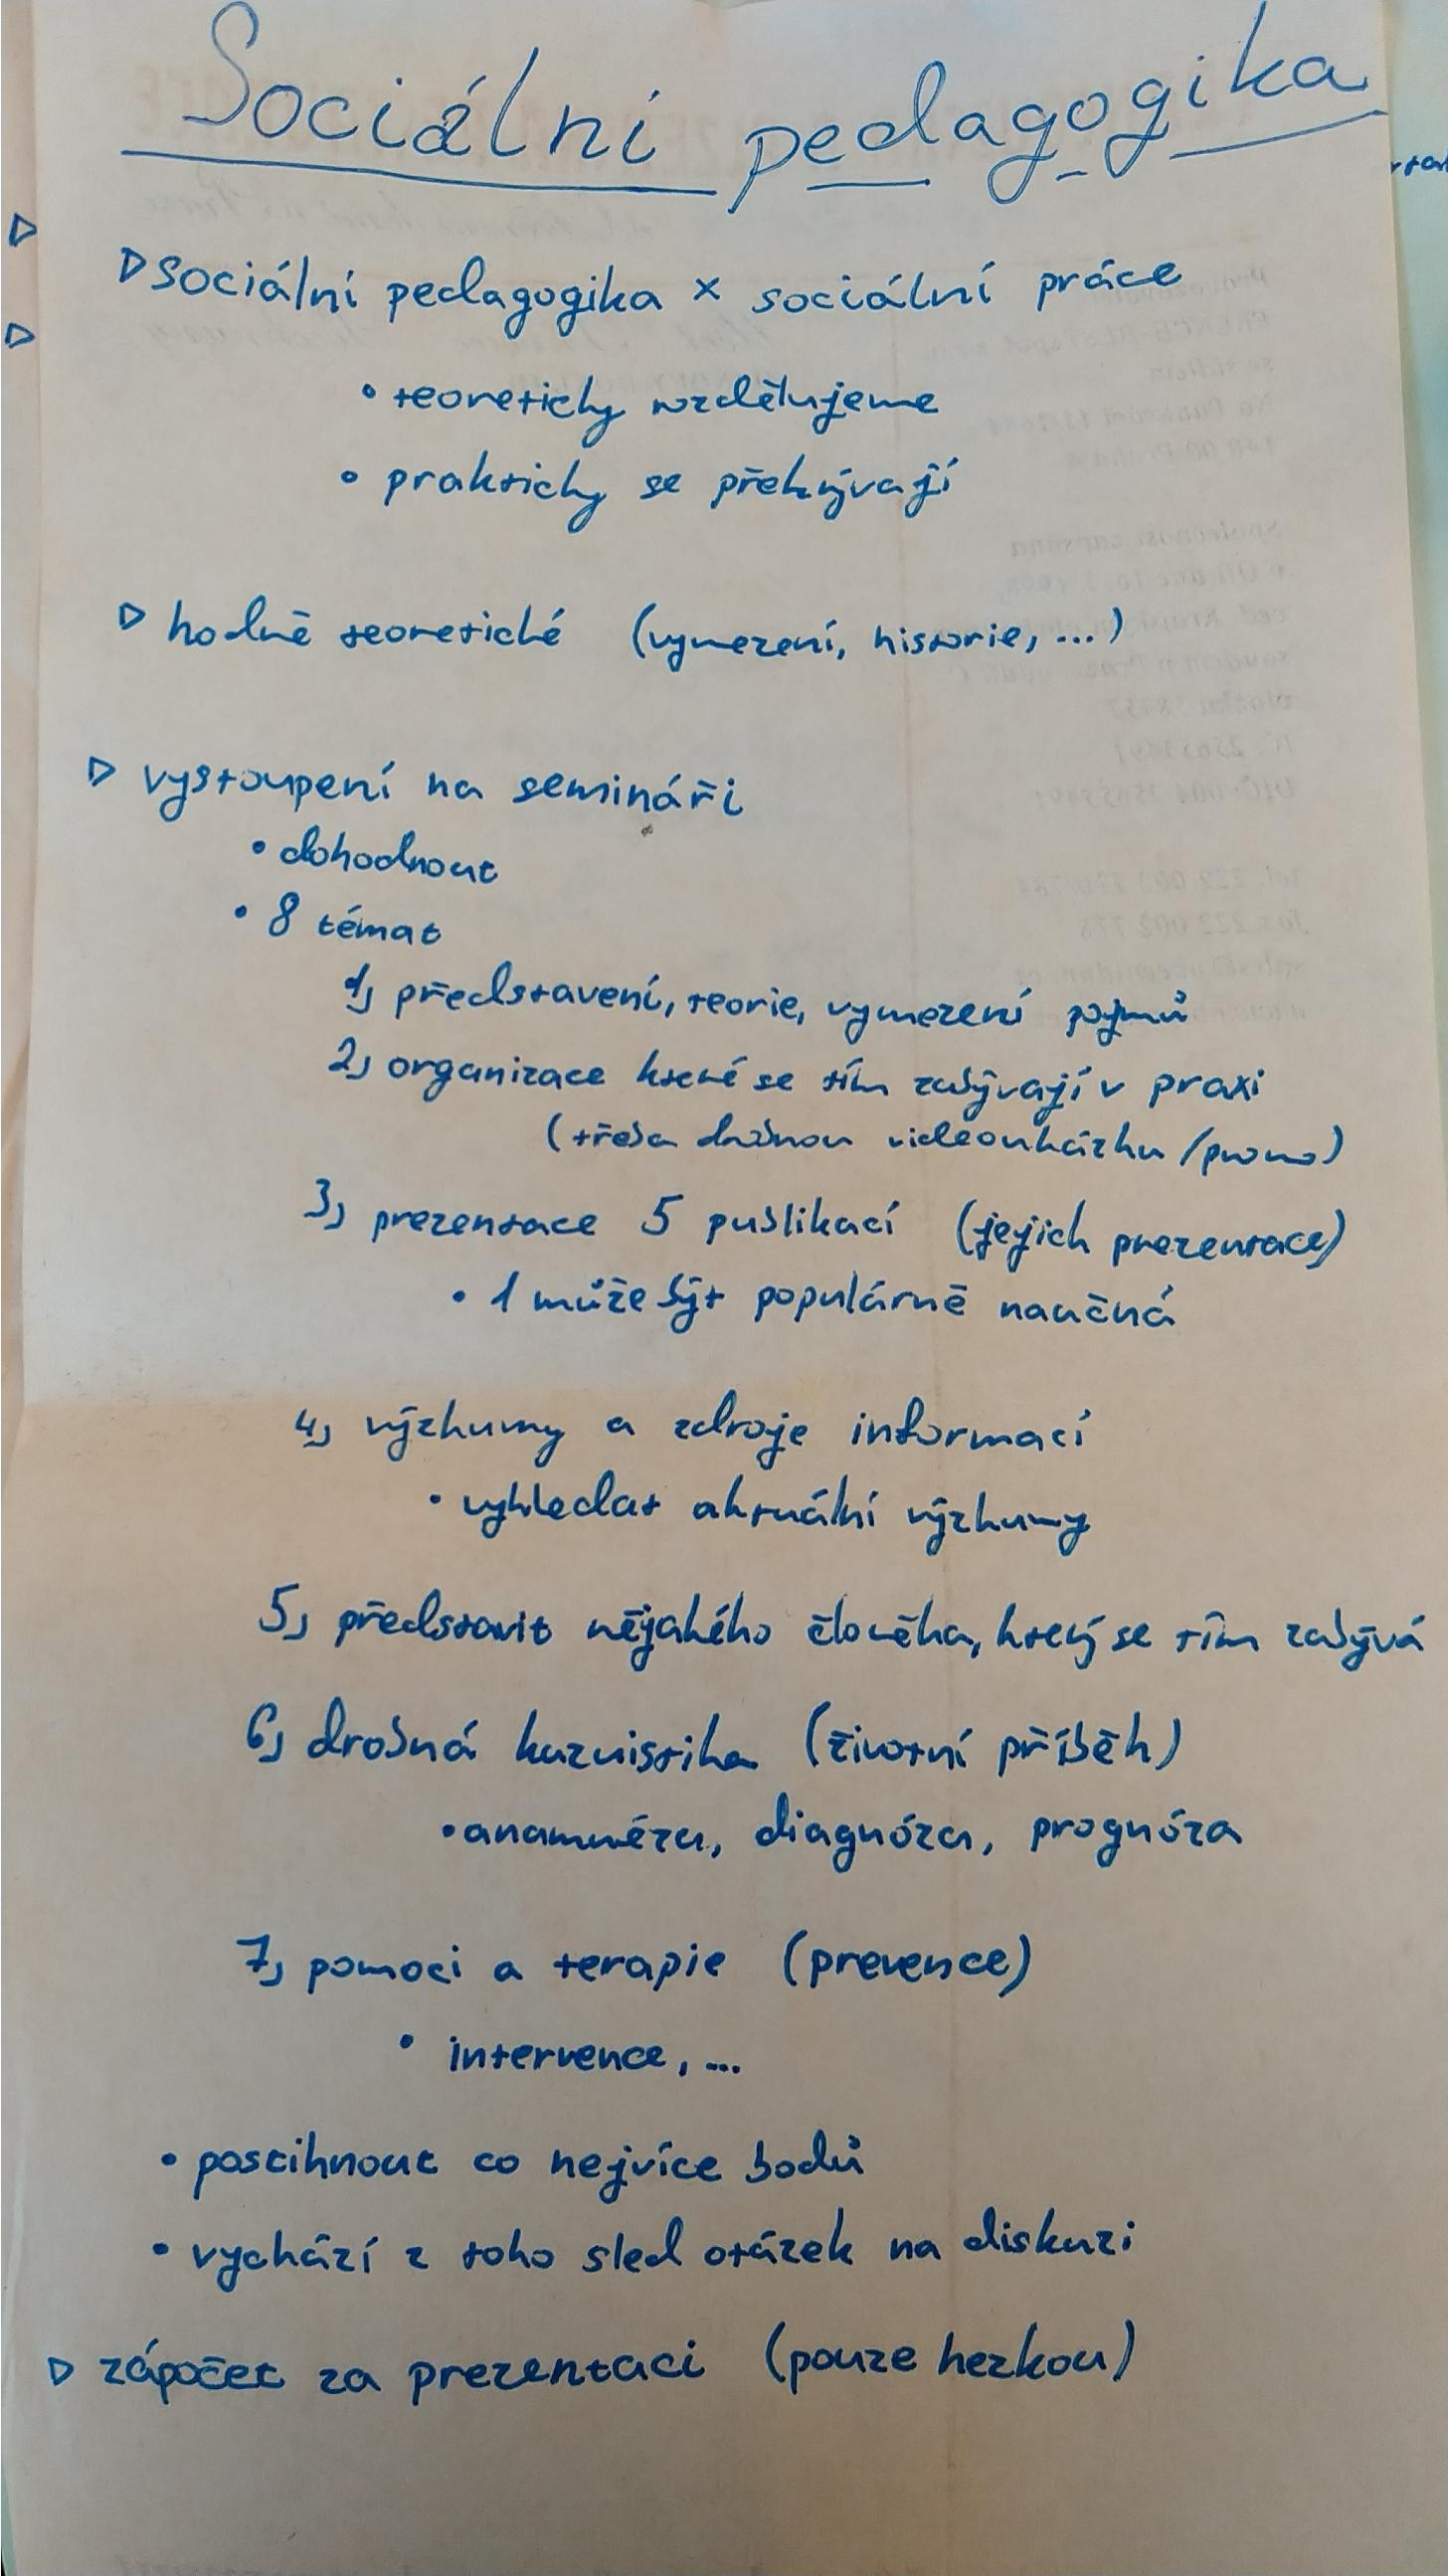 Sociální pedagogika
▷ sociální pedagogika × sociální práce
• teoreticky vzdělujeme
• prakticky se překrývají
▷ hodně teoretické (vymezení, historie, ...)
▷ vystoupení na semináři
• dohodnout
• 8 témat
1) představení, teorie, vymezení pojmů
2) organizace které se tím zabývají v praxi
(třeba drobnou videoukázku / promo)
3) prezentace 5 publikací (jejich prezentace)
• 1 může být populárně naučná
4) výzkumy a zdroje informací
• vyhledat aktuální výzkumy
5) představit nějakého člověka, který se tím zabývá
6) drobná kazuistika (životní příběh)
• anamnéza, diagnóza, prognóza
7) pomoci a terapie (prevence)
• intervence, ...
• postihnout co nejvíce bodů
• vychází z toho sled otázek na diskuzi
▷ zápočet za prezentaci (pouze hezkou)